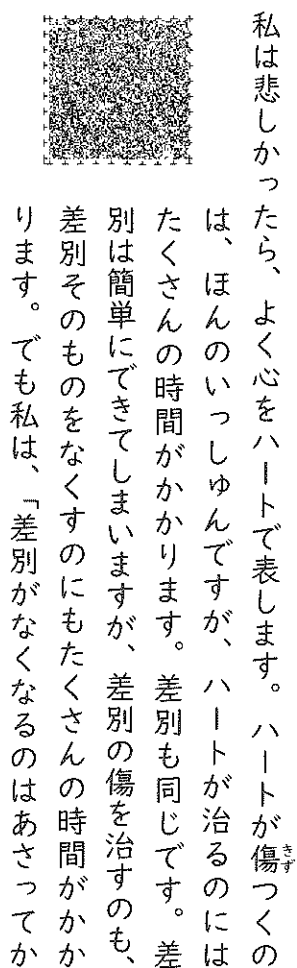 私は悲しかったら、よく心をハートで表します。ハートが傷つくの
は、ほんのいっしゅんですが、ハートが治るのには
たくさんの時間がかかります。差別も同じです。差
別は簡単にできてしまいますが、差別の傷を治すのも、
差別そのものをなくすのにもたくさんの時間がかか
ります。でも私は、「差別がなくなるのはあさってか
きず